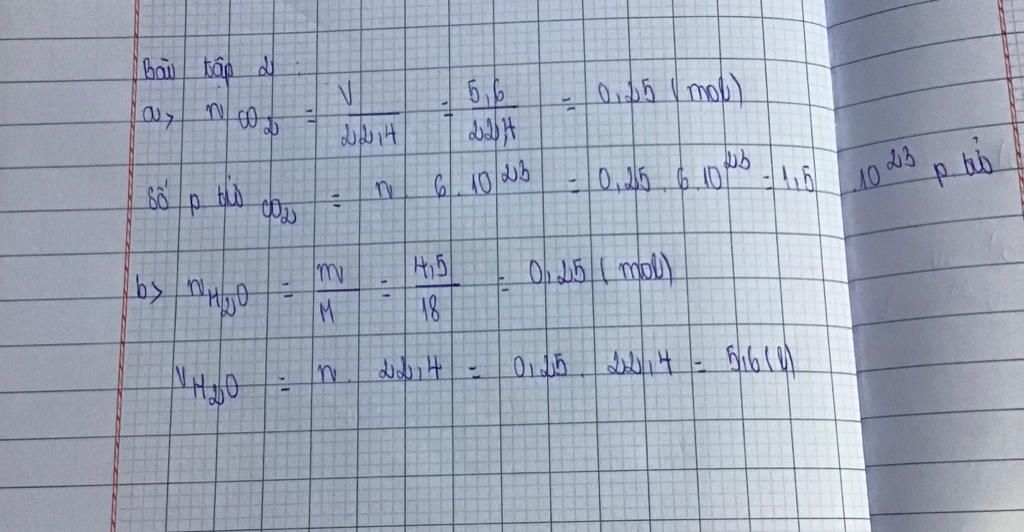 Bài tập 2:
a> n CO2 = V/22,4 = 5,6/22,4 = 0,25 (mol)
Số p tử CO2 = n . 6.10^23 = 0,25 . 6.10^23 = 1,5 .10^23 p tử
b> nH2O = m/M = 4,5/18 = 0,25 (mol)
VH2O = n . 22,4 = 0,25 . 22,4 = 5,6 (l)